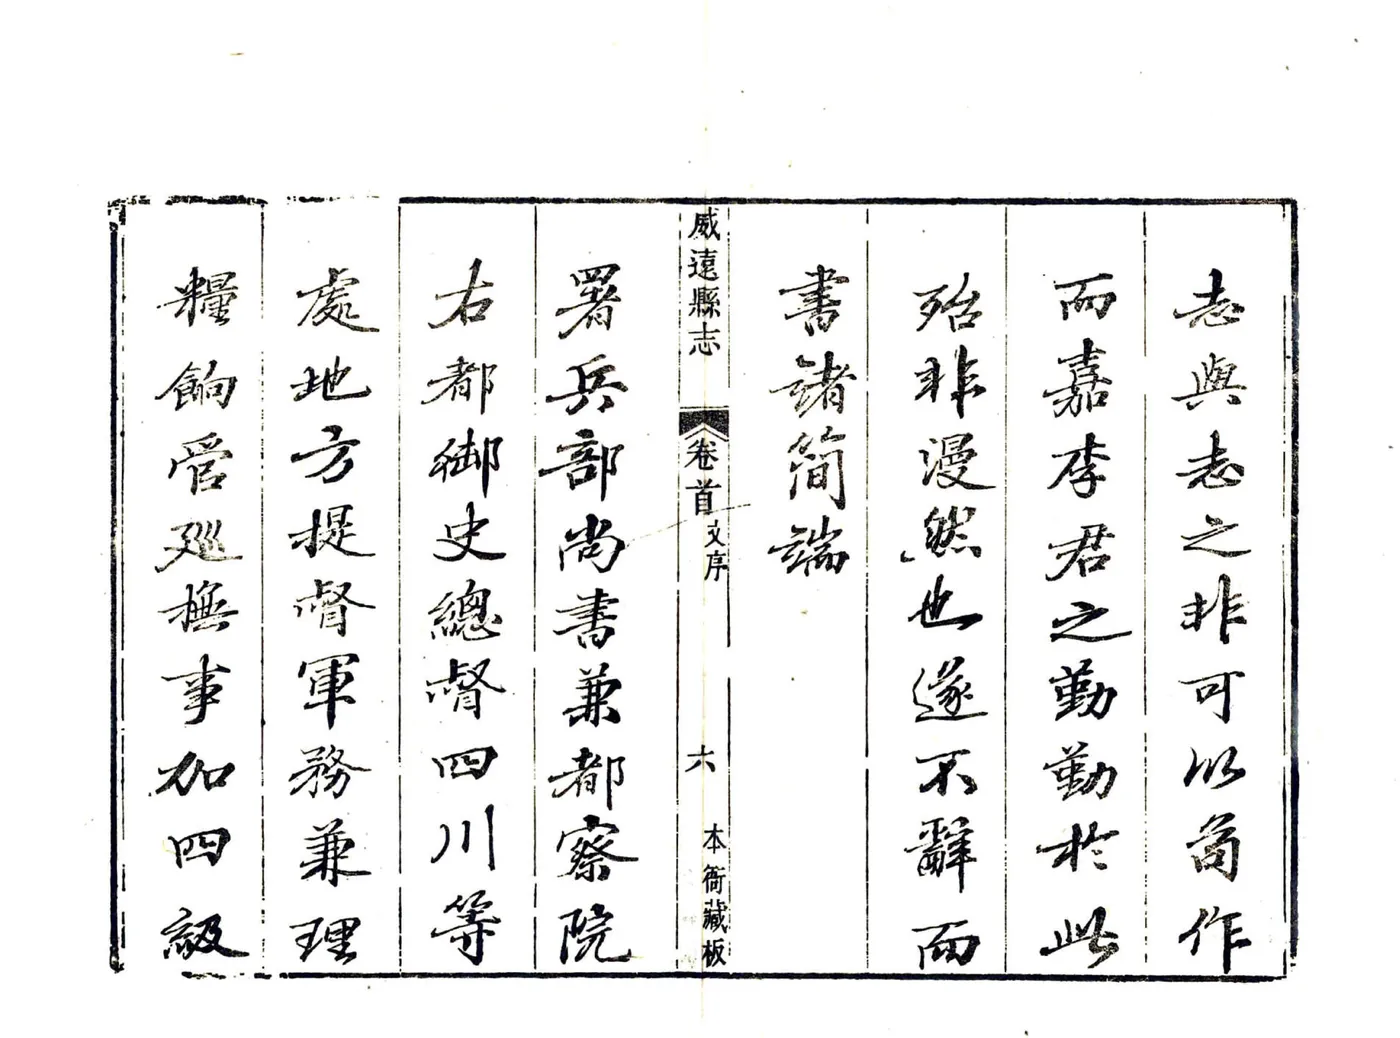 志與志之非可以苟作
而嘉李君之勤勤於此
殆非漫然也遂不辭而
書諸簡端
威遠縣志
卷首
文序
六
本衙藏板
署兵部尚書兼都察院
右都御史總督四川等
處地方提督軍務兼理
糧餉管廵撫事加四級